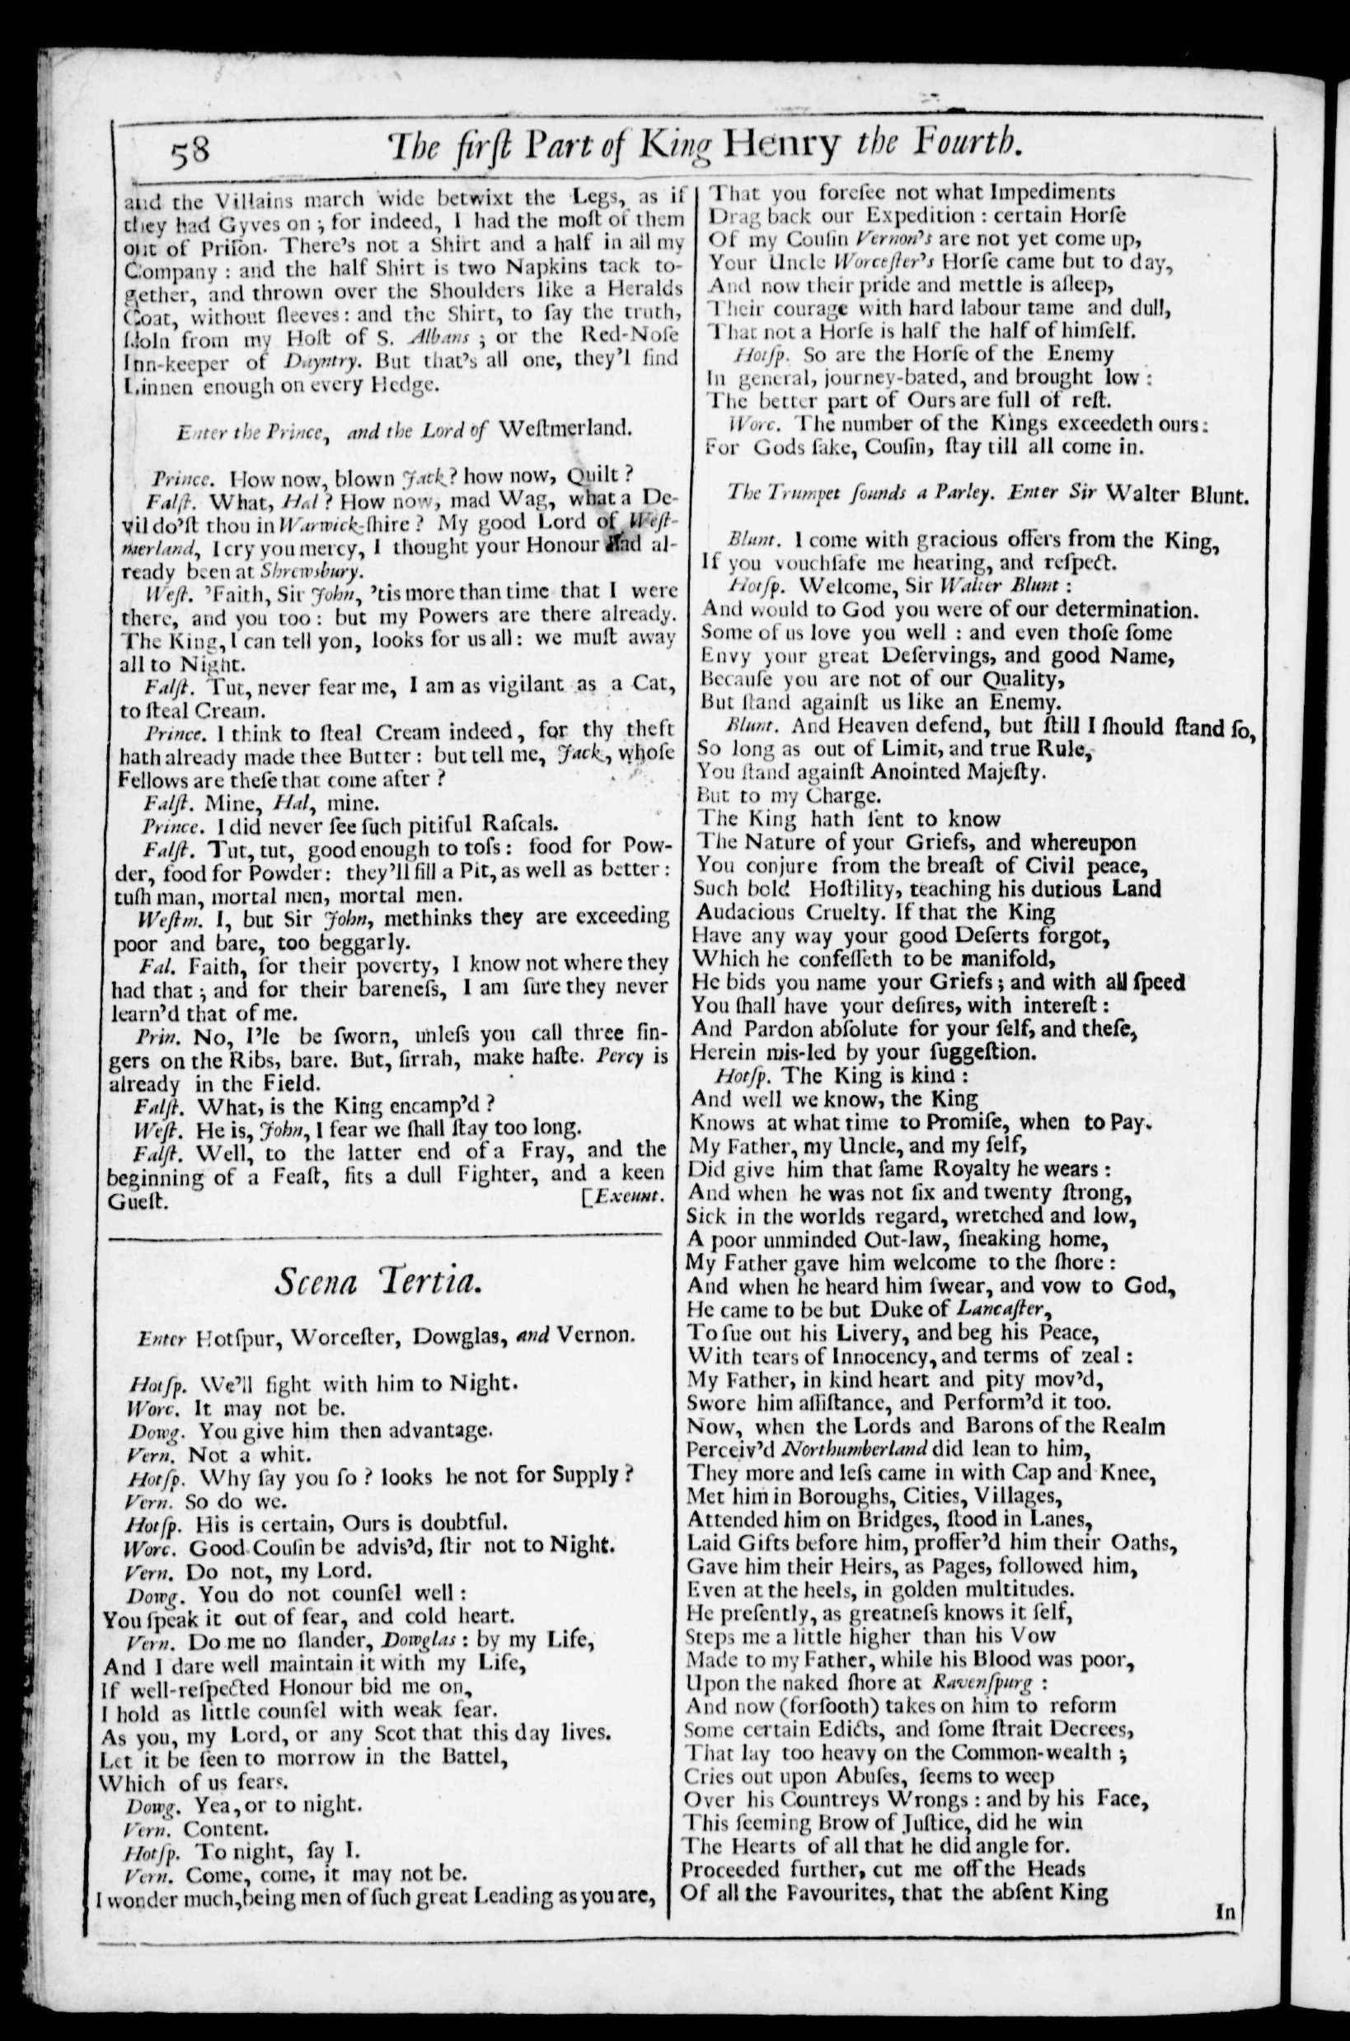 58
The firſt Part of King Henry the Fourth.
and the Villains march wide betwixt the Legs, as if
they had Gyves on; for indeed, I had the moſt of them
out of Priſon. There's not a Shirt and a half in all my
Company: and the half Shirt is two Napkins tack to-
gether, and thrown over the Shoulders like a Heralds
Coat, without ſleeves: and the Shirt, to ſay the truth,
ſtoln from my Hoſt of S. Albans; or the Red-Noſe
Inn-keeper of Dayntry. But that's all one, they'l find
Linnen enough on every Hedge.
Enter the Prince, and the Lord of Weſtmerland.
Prince. How now, blown Jack? how now, Quilt?
Falſt. What, Hal? How now, mad Wag, what a De-
vil do'ſt thou in Warwick-ſhire? My good Lord of Weſt-
merland, I cry you mercy, I thought your Honour had al-
ready been at Shrewsbury.
Weſt. 'Faith, Sir John, 'tis more than time that I were
there, and you too: but my Powers are there already.
The King, I can tell yon, looks for us all: we muſt away
all to Night.
Falſt. Tut, never fear me, I am as vigilant as a Cat,
to ſteal Cream.
Prince. I think to ſteal Cream indeed, for thy theft
hath already made thee Butter: but tell me, Jack, whoſe
Fellows are theſe that come after?
Falſt. Mine, Hal, mine.
Prince. I did never ſee ſuch pitiful Raſcals.
Falſt. Tut, tut, good enough to toſs: food for Pow-
der, food for Powder: they'll fill a Pit, as well as better:
tuſh man, mortal men, mortal men.
Weſtm. I, but Sir John, methinks they are exceeding
poor and bare, too beggarly.
Fal. Faith, for their poverty, I know not where they
had that; and for their bareneſs, I am ſure they never
learn'd that of me.
Prin. No, I'le be ſworn, unleſs you call three fin-
gers on the Ribs, bare. But, ſirrah, make haſte. Percy is
already in the Field.
Falſt. What, is the King encamp'd?
Weſt. He is, John, I fear we ſhall ſtay too long.
Falſt. Well, to the latter end of a Fray, and the
beginning of a Feaſt, fits a dull Fighter, and a keen
Gueſt. [Exeunt.
Scena Tertia.
Enter Hotſpur, Worceſter, Dowglas, and Vernon.
Hotſp. We'll fight with him to Night.
Worc. It may not be.
Dowg. You give him then advantage.
Vern. Not a whit.
Hotſp. Why ſay you ſo? looks he not for Supply?
Vern. So do we.
Hotſp. His is certain, Ours is doubtful.
Worc. Good Couſin be advis'd, ſtir not to Night.
Vern. Do not, my Lord.
Dowg. You do not counſel well:
You ſpeak it out of fear, and cold heart.
Vern. Do me no ſlander, Dowglas: by my Life,
And I dare well maintain it with my Life,
If well-reſpected Honour bid me on,
I hold as little counſel with weak fear.
As you, my Lord, or any Scot that this day lives.
Let it be ſeen to morrow in the Battel,
Which of us fears.
Dowg. Yea, or to night.
Vern. Content.
Hotſp. To night, ſay I.
Vern. Come, come, it may not be.
I wonder much, being men of ſuch great Leading as you are,
That you foreſee not what Impediments
Drag back our Expedition: certain Horſe
Of my Couſin Vernon's are not yet come up,
Your Uncle Worceſter's Horſe came but to day,
And now their pride and mettle is aſleep,
Their courage with hard labour tame and dull,
That not a Horſe is half the half of himſelf.
Hotſp. So are the Horſe of the Enemy
In general, journey-bated, and brought low:
The better part of Ours are full of reſt.
Worc. The number of the Kings exceedeth ours:
For Gods ſake, Couſin, ſtay till all come in.
The Trumpet ſounds a Parley. Enter Sir Walter Blunt.
Blunt. I come with gracious offers from the King,
If you vouchſafe me hearing, and reſpect.
Hotſp. Welcome, Sir Walter Blunt:
And would to God you were of our determination.
Some of us love you well: and even thoſe ſome
Envy your great Deſervings, and good Name,
Becauſe you are not of our Quality,
But ſtand againſt us like an Enemy.
Blunt. And Heaven defend, but ſtill I ſhould ſtand ſo,
So long as out of Limit, and true Rule,
You ſtand againſt Anointed Majeſty.
But to my Charge.
The King hath ſent to know
The Nature of your Griefs, and whereupon
You conjure from the breaſt of Civil peace,
Such bold Hoſtility, teaching his dutious Land
Audacious Cruelty. If that the King
Have any way your good Deſerts forgot,
Which he confeſſeth to be manifold,
He bids you name your Griefs; and with all ſpeed
You ſhall have your deſires, with intereſt:
And Pardon abſolute for your ſelf, and theſe,
Herein mis-led by your ſuggeſtion.
Hotſp. The King is kind:
And well we know, the King
Knows at what time to Promiſe, when to Pay.
My Father, my Uncle, and my ſelf,
Did give him that ſame Royalty he wears:
And when he was not ſix and twenty ſtrong,
Sick in the worlds regard, wretched and low,
A poor unminded Out-law, ſneaking home,
My Father gave him welcome to the ſhore:
And when he heard him ſwear, and vow to God,
He came to be but Duke of Lancaſter,
To ſue out his Livery, and beg his Peace,
With tears of Innocency, and terms of zeal:
My Father, in kind heart and pity mov'd,
Swore him aſſiſtance, and Perform'd it too.
Now, when the Lords and Barons of the Realm
Perceiv'd Northumberland did lean to him,
They more and leſs came in with Cap and Knee,
Met him in Boroughs, Cities, Villages,
Attended him on Bridges, ſtood in Lanes,
Laid Gifts before him, proffer'd him their Oaths,
Gave him their Heirs, as Pages, followed him,
Even at the heels, in golden multitudes.
He preſently, as greatneſs knows it ſelf,
Steps me a little higher than his Vow
Made to my Father, while his Blood was poor,
Upon the naked ſhore at Ravenſpurg:
And now (forſooth) takes on him to reform
Some certain Edicts, and ſome ſtrait Decrees,
That lay too heavy on the Common-wealth;
Cries out upon Abuſes, ſeems to weep
Over his Countreys Wrongs: and by his Face,
This ſeeming Brow of Juſtice, did he win
The Hearts of all that he did angle for.
Proceeded further, cut me off the Heads
Of all the Favourites, that the abſent King
In